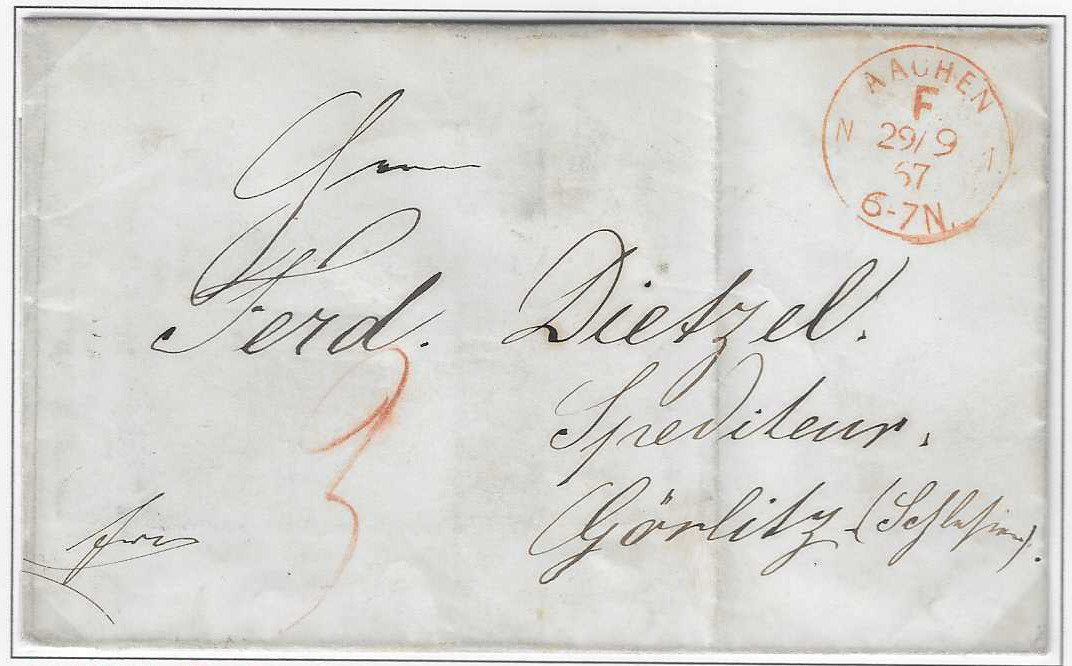 AACHEN
F
N 1
29/9
67
6-7N.
Herrn
Ferd. Dietzel.
3
Spediteur.
Görlitz (Schlesien).